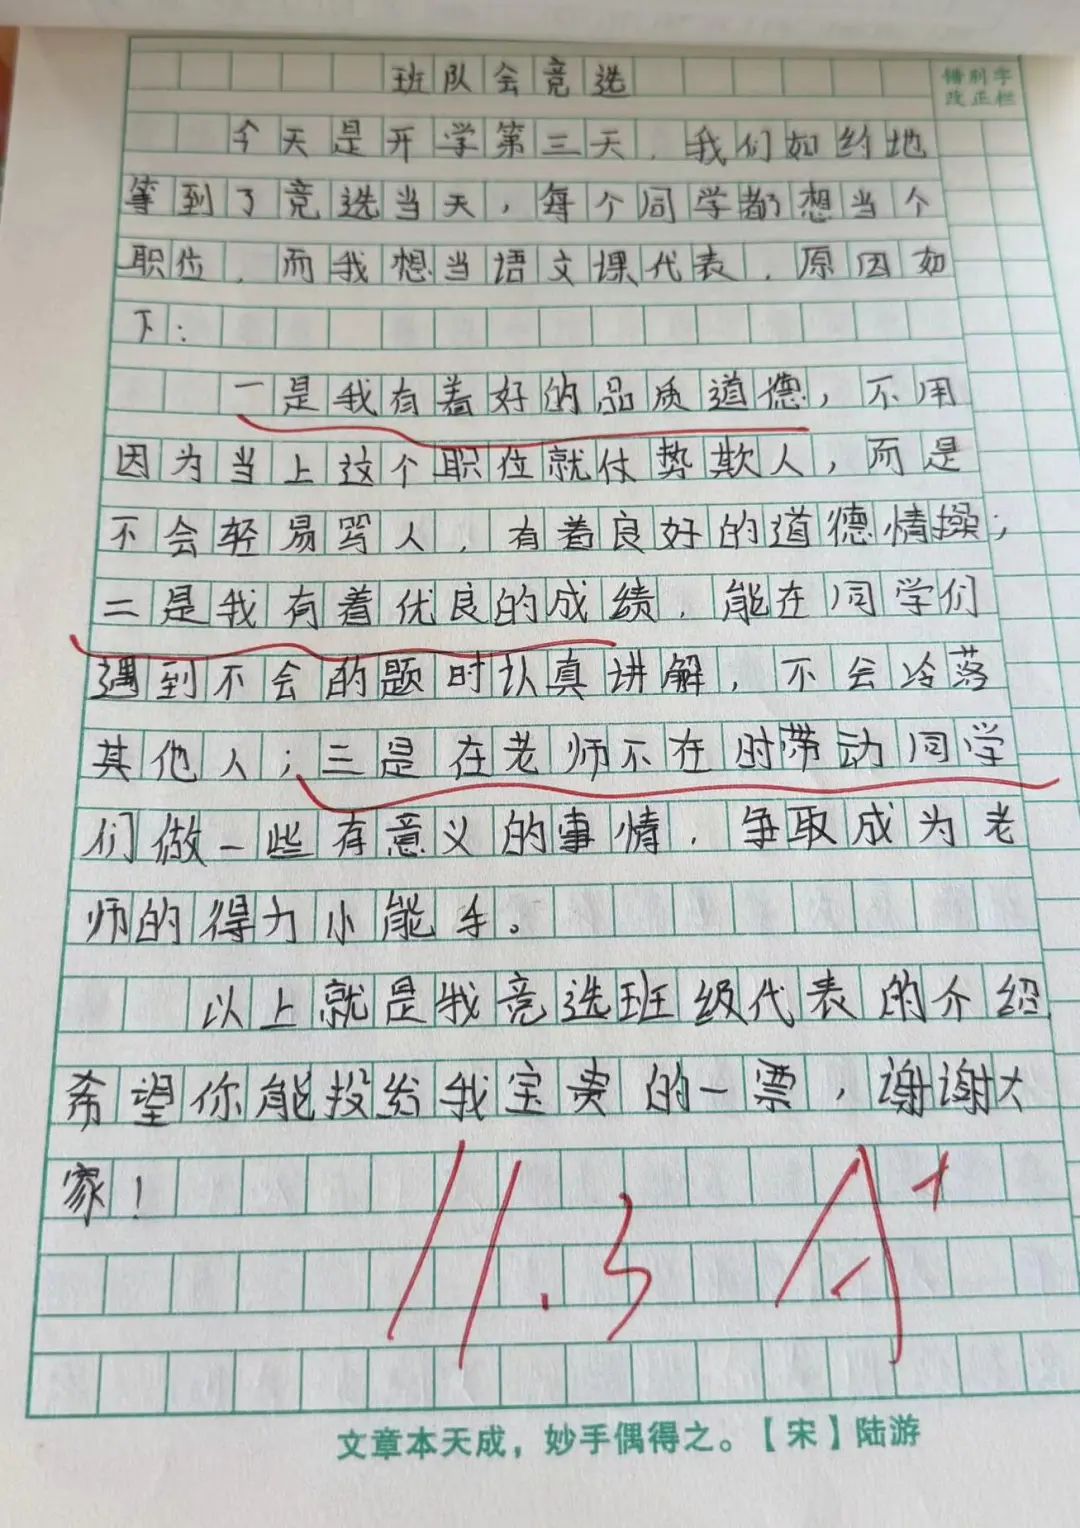 班队会竞选
错别字
改正栏
今天是开学第三天，我们如约地
等到了竞选当天，每个同学都想当个
职位，而我想当语文课代表，原因如
下：
一是我有着好的品质道德，不用
因为当上这个职位就仗势欺人，而是
不会轻易骂人，有着良好的道德情操；
二是我有着优良的成绩，能在同学们
遇到不会的题时认真讲解，不会冷落
其他人；三是在老师不在时带动同学
们做一些有意义的事情，争取成为老
师的得力小能手。
以上就是我竞选班级代表的介绍
希望你能投给我宝贵的一票，谢谢大
家！
11.3 A+
文章本天成，妙手偶得之。【宋】陆游